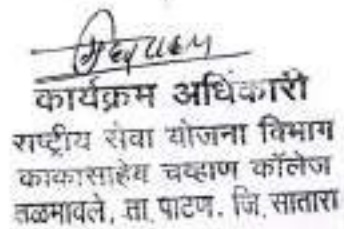 कार्यक्रम अधिकारी
राष्ट्रीय सेवा योजना विभाग
काकासाहेब चव्हाण कॉलेज
तळमावले, ता. पाटण. जि. सातारा